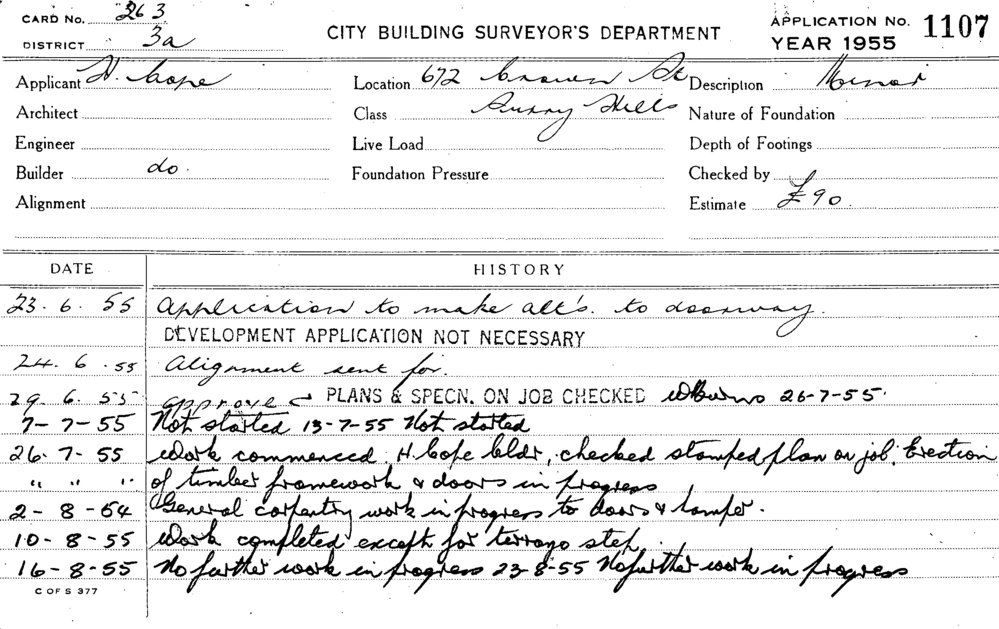 CARD No. 263
DISTRICT 3a
CITY BUILDING SURVEYOR'S DEPARTMENT
APPLICATION No. 1107
YEAR 1955
Applicant H. Cope Location 672 Crown St Description Minor
Architect Class Surry Hills Nature of Foundation
Engineer Live Load Depth of Footings
Builder do. Foundation Pressure Checked by
Alignment Estimate £90.
DATE HISTORY
23. 6. 55 Application to make alt's. to doorway.
DEVELOPMENT APPLICATION NOT NECESSARY
24. 6. 55 Alignment sent for.
29. 6. 55 approve PLANS & SPECN. ON JOB CHECKED 26-7-55.
7-7-55 Not started 13-7-55 Not started
26-7-55 Work commenced, H. Cope bldr, checked stamped plan on job. Erection
" " " of timber framework & doors in progress
2-8-54 General carpentry work in progress to doors &
10-8-55 Work completed except for terrazo step.
16-8-55 No further work in progress 23-8-55 No further work in progress
C OF S 377